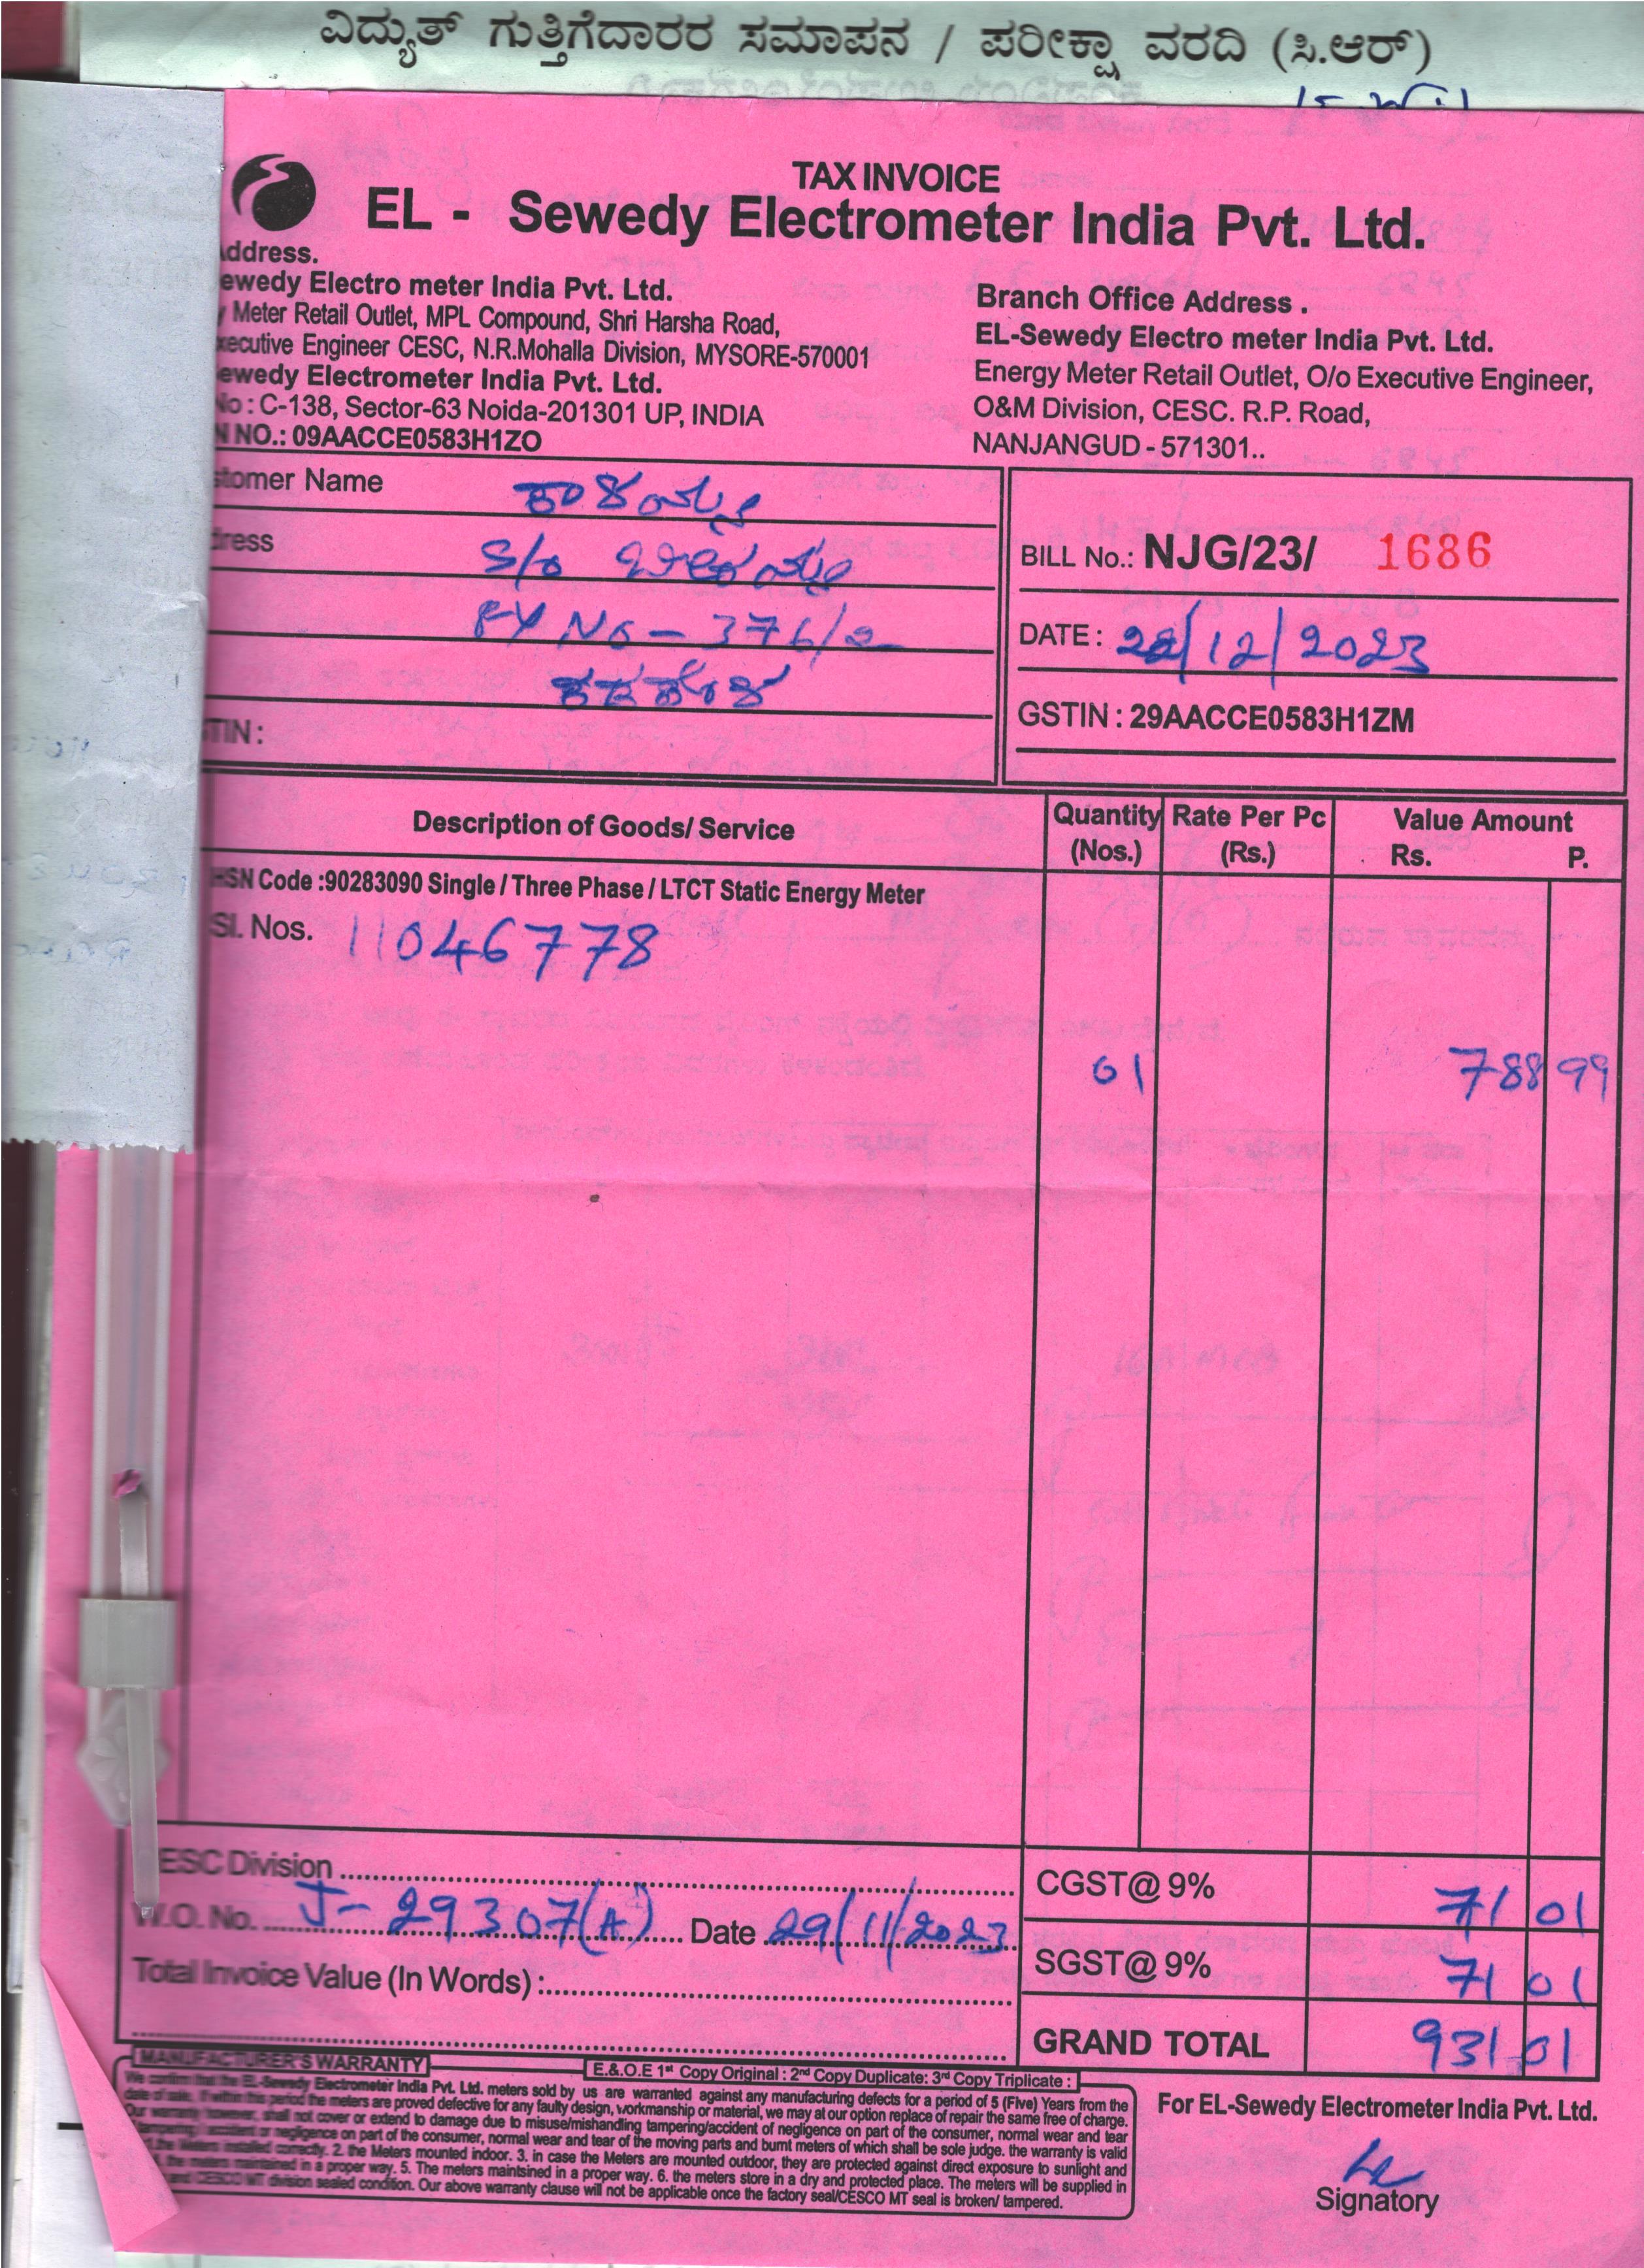 ವಿದ್ಯುತ್ ಗುತ್ತಿಗೆದಾರರ ಸಮಾಪನ / ಪರೀಕ್ಷಾ ವರದಿ (ಸಿ.ಆರ್)
TAX INVOICE
EL - Sewedy Electrometer India Pvt. Ltd.
ddress.
ewedy Electro meter India Pvt. Ltd.
Meter Retail Outlet, MPL Compound, Shri Harsha Road,
xecutive Engineer CESC, N.R.Mohalla Division, MYSORE-570001
ewedy Electrometer India Pvt. Ltd.
No : C-138, Sector-63 Noida-201301 UP, INDIA
N NO.: 09AACCE0583H1ZO
Branch Office Address .
EL-Sewedy Electro meter India Pvt. Ltd.
Energy Meter Retail Outlet, O/o Executive Engineer,
O&M Division, CESC. R.P. Road,
NANJANGUD - 571301..
stomer Name
dress S/o
No - 376/2
TIN :
BILL No.: NJG/23/ 1686
DATE : 22/12/2023
GSTIN : 29AACCE0583H1ZM
Description of Goods/ Service Quantity (Nos.) Rate Per Pc (Rs.) Value Amount Rs. P.
HSN Code :90283090 Single / Three Phase / LTCT Static Energy Meter
Sl. Nos. 11046778
01 788 99
ESC Division
W.O. No. J- 29307(A) Date 29/11/2023
Total Invoice Value (In Words) :
CGST@ 9% 71 01
SGST@ 9% 71 01
GRAND TOTAL 931 01
MANUFACTURER'S WARRANTY E.& O.E 1st Copy Original : 2nd Copy Duplicate: 3rd Copy Triplicate :
We confirm that the EL-Sewedy Electrometer India Pvt. Ltd. meters sold by us are warranted against any manufacturing defects for a period of 5 (Five) Years from the
date of sale. If within this period the meters are proved defective for any faulty design, workmanship or material, we may at our option replace of repair the same free of charge.
Our warranty however, shall not cover or extend to damage due to misuse/mishandling tampering/accident of negligence on part of the consumer, normal wear and tear
tampering, accident or negligence on part of the consumer, normal wear and tear of the moving parts and burnt meters of which shall be sole judge. the warranty is valid
the Meters installed correctly. 2. the Meters mounted indoor. 3. in case the Meters are mounted outdoor, they are protected against direct exposure to sunlight and
the meters maintained in a proper way. 5. The meters maintsined in a proper way. 6. the meters store in a dry and protected place. The meters will be supplied in
and CESCO MT division sealed condition. Our above warranty clause will not be applicable once the factory seal/CESCO MT seal is broken/ tampered.
For EL-Sewedy Electrometer India Pvt. Ltd.
Signatory